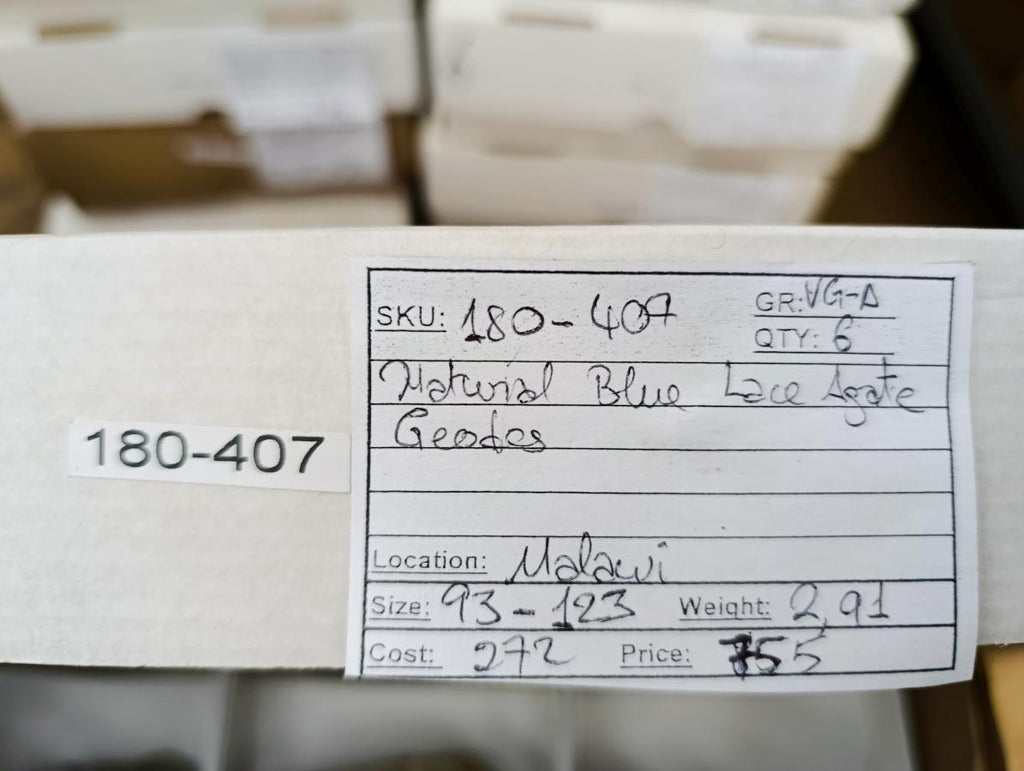 SKU: 180-407
GR: VG-A
QTY: 6
Natural Blue Lace Agate
Geodes
180-407
Location: Malawi
Size: 93-123 Weight: 2,91
Cost: 272 Price: 755